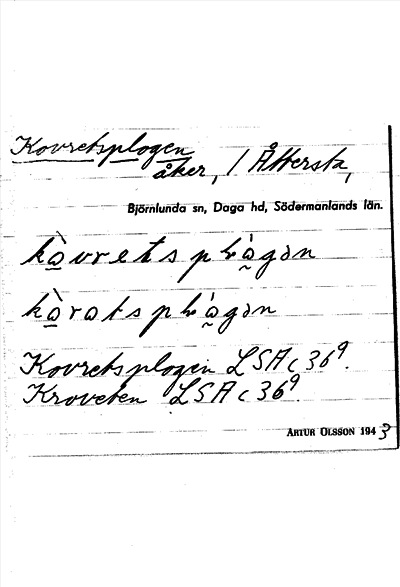 Kovretsplogen
åker, / Åttersta,
Björnlunda sn, Daga hd, Södermanlands län.
Kovretsplogen LSA c 36⁹.
Kroveten LSA c 36⁹.
ARTUR OLSSON 1943